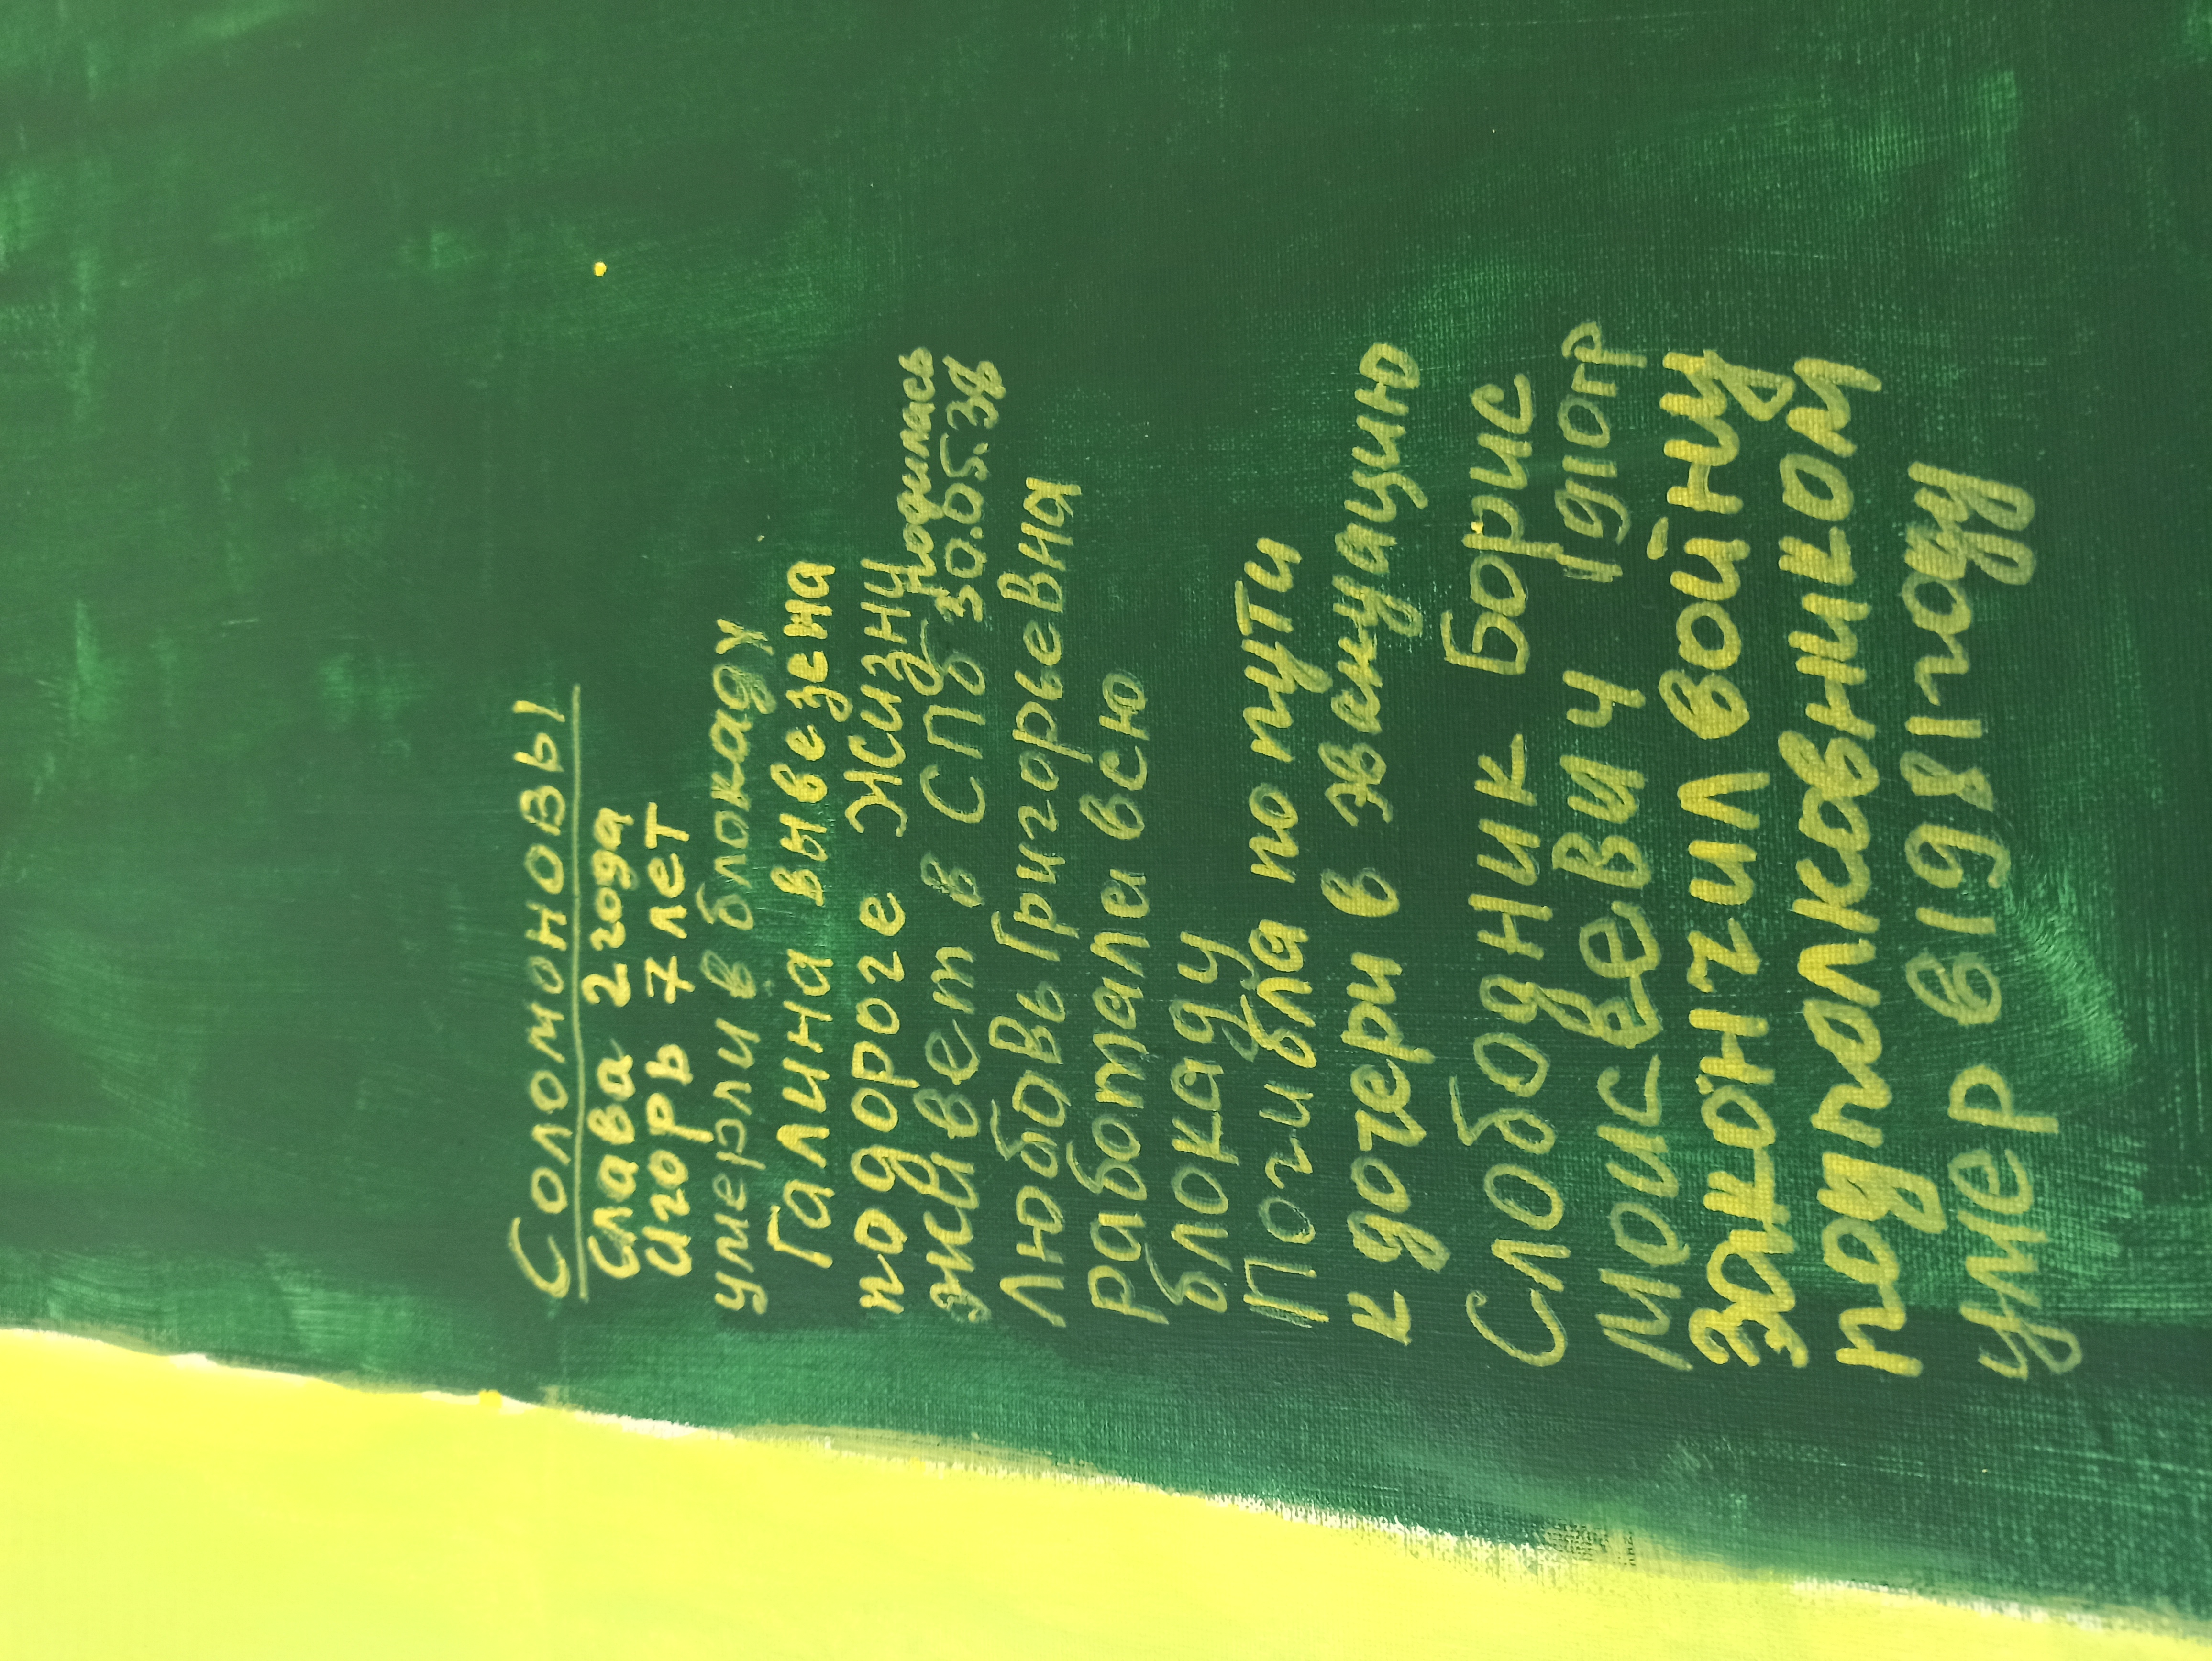 Соломоновы
Слава 2 года
Игорь 7 лет
умерли в блокаду
Галина вывезена
по дороге жизни
родилась
живет в СПб 30.05.38
Любовь Григорьевна
работала всю
блокаду
Погибла по пути
к дочери в эвакуацию
Слободник Борис
Моисеевич 1910гр
закончил войну
подполковником
умер в 1981 году